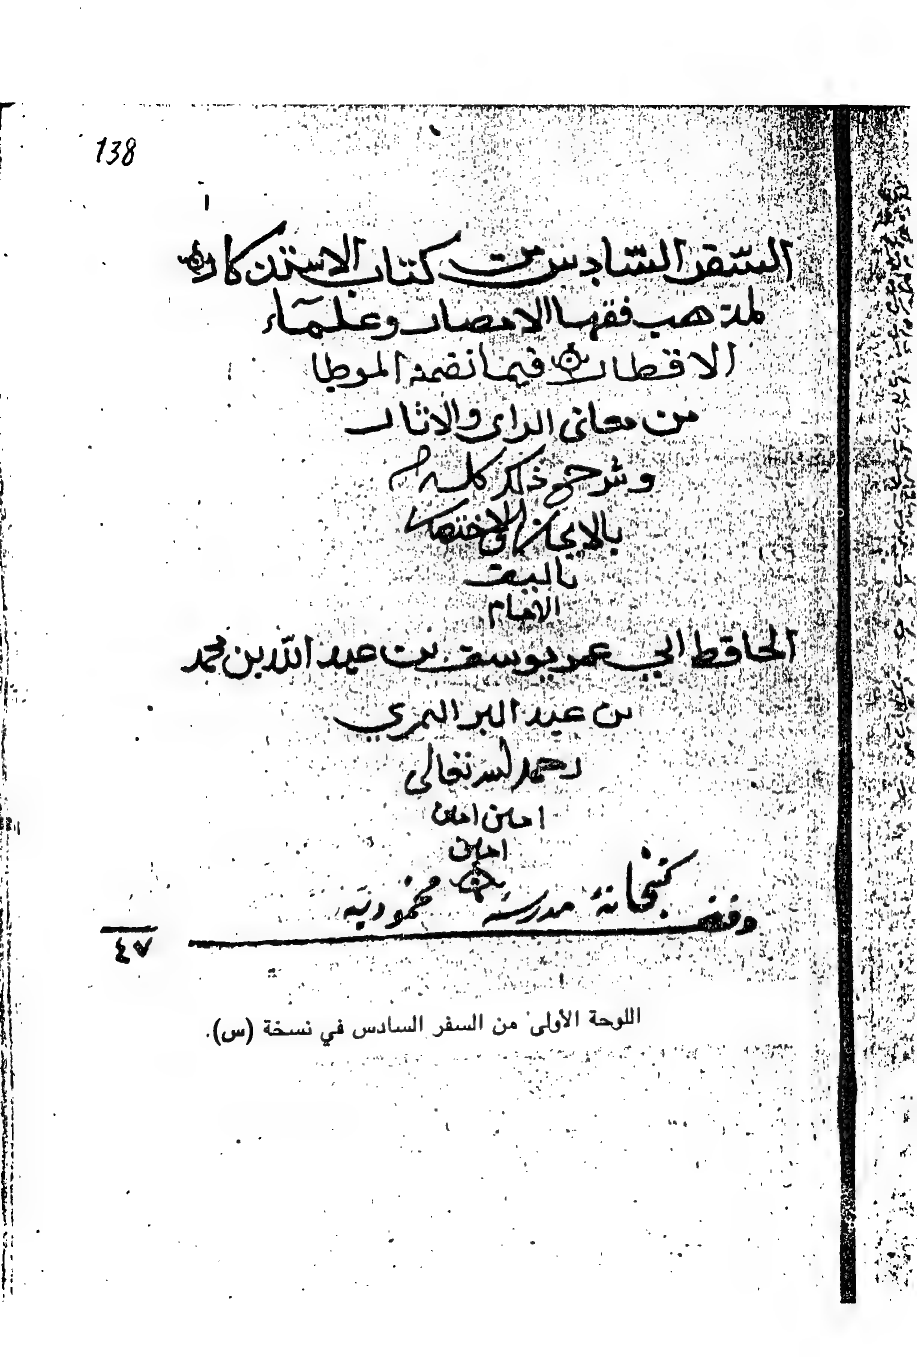 138
السفر السادس من كتاب الاستذكار
لمذهب فقهاء الامصار وعلماء
الاقطار فيما تضمنه الموطا
من معاني الراي والاثار
وشرح ذلك كله
بالايجاز والاختصار
تاليف
الامام
الحافظ ابي عمر يوسف بن عبد الله بن محمد
بن عبد البر النمري
رحمه الله تعالى
امين امين
امين
وقف كتبخانهٔ مدرسهٔ محموديه
٤٧
اللوحة الأولى من السفر السادس في نسخة (س).